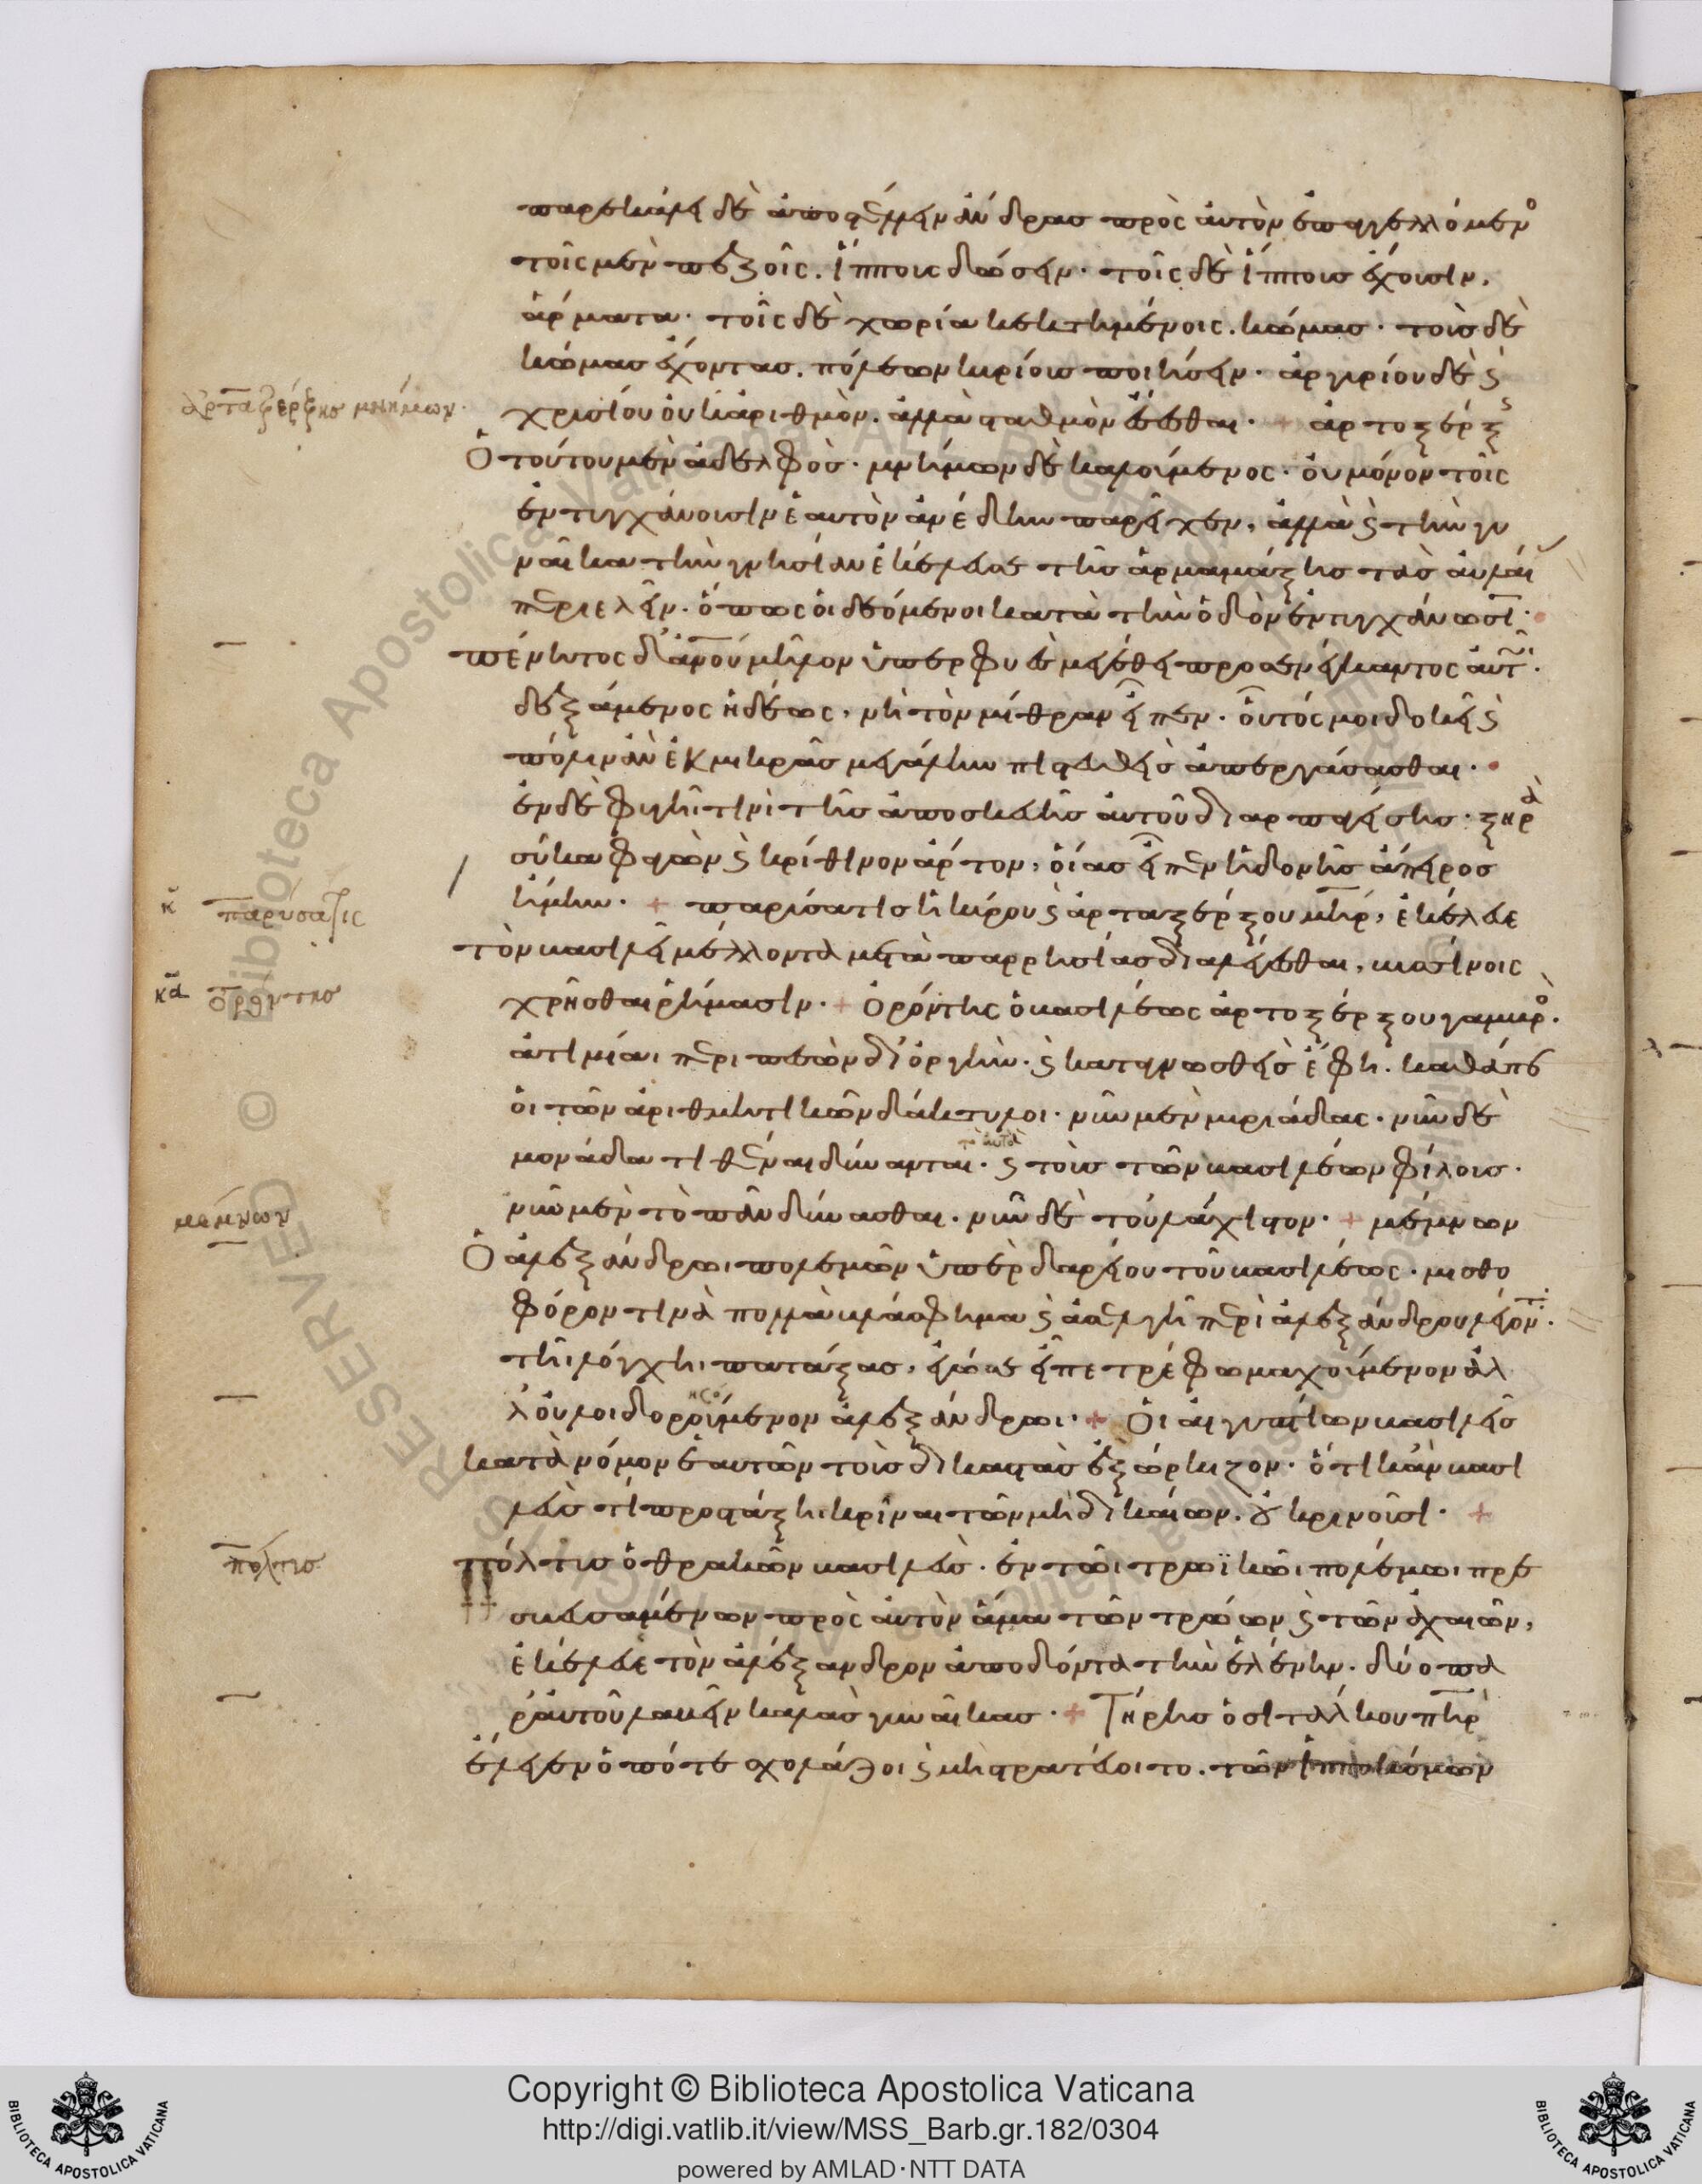 παρεκάλει δὲ ἀποστέλλειν ἄνδρας πρὸς αὐτὸν ἐπαγγελλόμενο
τοῖς μὲν πεζοῖς. ἵππους δώσειν· τοῖς δὲ ἵππους ἔχουσιν,
ἅρματα· τοῖς δὲ χωρία κεκτημένοις. κώμας· τοὺς δὲ
κώμας ἔχοντας. πόλεων κυρίους ποιήσειν· ἀργυρίου δὲ ϛ
ἀρταξέρξης μνήμων·
χρυσίου οὐκ ἀριθμὸν. ἀλλὰ σταθμὸν ἔσεσθαι· + ἀρτοξέρξ
Ὁ τούτου μὲν ἀδελφὸς· μνήμων δὲ καλούμενος· οὐ μόνον τοῖς
ἐντυγχάνουσιν ἑαυτὸν ἀνέδην παρεῖχεν, ἀλλὰ ϛ τὴν γυ
ναῖκα τὴν γνησίαν ἐκέλευσε τῆς ἁρμαμάξης τὰς αὐλαί
περιελεῖν. ὅπως οἱ δεόμενοι κατὰ τὴν ὁδὸν ἐντυγχάνωσι·
πένητος δἀνου μῆλον ὑπερφυὲ μεγέθει προσενείκαντος αὐτ·
δεξάμενος ἡδέως, νὴ τὸν μίθραν εἶπεν· οὗτός μοι δοκεῖ ϛ
πόλιν ἂν ἐκ μικρᾶς μεγάλην πιστευθεὶς ἀπεργάσασθαι·
ἐν δὲ φυγῆ τινὶ τῆς ἀποσκευῆς αὐτοῦ διαρπαγείσης· ξηρὰ
σύκα φαγὼν ϛ κρίθινον ἄρτον, οἵας εἶπεν ἡδονῆς ἄπειρος
κ παρύσατις
ἤμην· + παρύσατις ἡ κύρου ϛ ἀρταξέρξου μηρ, ἐκέλευε
τὸν βασιλεῖ μέλλοντα μετὰ παρρησίας διαλέγεσθαι, βυσσίνοις
κα ὀρόντης
χρῆσθαι ῥήμασιν· + ὀρόντης ὁ βασιλέως ἀρτοξέρξου γαμβρὸ·
ἀτιμίαι περιπεσὼν δι ὀργὴν· ϛ καταγνωσθεὶς ἔφη. καθάπε
οἱ τῶν ἀριθμητικῶν δάκτυλοι· νῦν μὲν μυριάδας· νῦν δὲ
τὸ αὐτὸ
μονάδα τιθέναι δύνανται· ϛ τοὺς τῶν βασιλέων φίλους·
μέμνων
νῦν μὲν τὸ πᾶν δύνασθαι· νῦν δὲ τοὐλάχιστον· + μέμνων
Ὁ ἀλεξάνδρωι πολεμῶν ὑπὲρ δαρείου τοῦ βασιλέως· μισθο
φόρον τινὰ πολλὰ βλάσφημα ϛ ἀσελγῆ περὶ ἀλεξάνδρου λέγοντ·
τῆι λόγχηι πατάξας, ἐγώ σε εἶπε τρέφω μαχούμενον ἀλ
λοὐ λοιδορούμενον ἀλεξάνδρωι· + Οἱ αἰγυπτίων βασιλεῖς
κατὰ νόμον ἑαυτῶν τοὺς δικαστὰς ἐξώρκιζον· ὅτι κἂν βασι
λεὺς τί προστάξηι κρῖναι τῶν μὴ δικαίων. οὐ κρινοῦσι· +
πόλτις
πόλτις ὁ θραικῶν βασιλεὺς· ἐν τῶι τρωϊκῶι πολέμωι πρε
σβευσαμένων πρὸς αὐτὸν ἅμα τῶν τρώων ϛ τῶν ἀχαιῶν,
ἐκέλευε τὸν ἀλέξανδρον ἀποδόντα τὴν ἑλένην· δύο πα
ρ αὐτοῦ λαβεῖν καλὰς γυναῖκας· + Τήρης ὁ σιτάλκου πηρ
ἔλεγεν ὁπότε σχολάζοι ϛ μὴ στρατεύοιτο. τῶν ἱπποκόμων
Copyright © Biblioteca Apostolica Vaticana
http://digi.vatlib.it/view/MSS_Barb.gr.182/0304
powered by AMLAD·NTT DATA
BIBLIOTECA APOSTOLICA VATICANA
BIBLIOTECA APOSTOLICA VATICANA